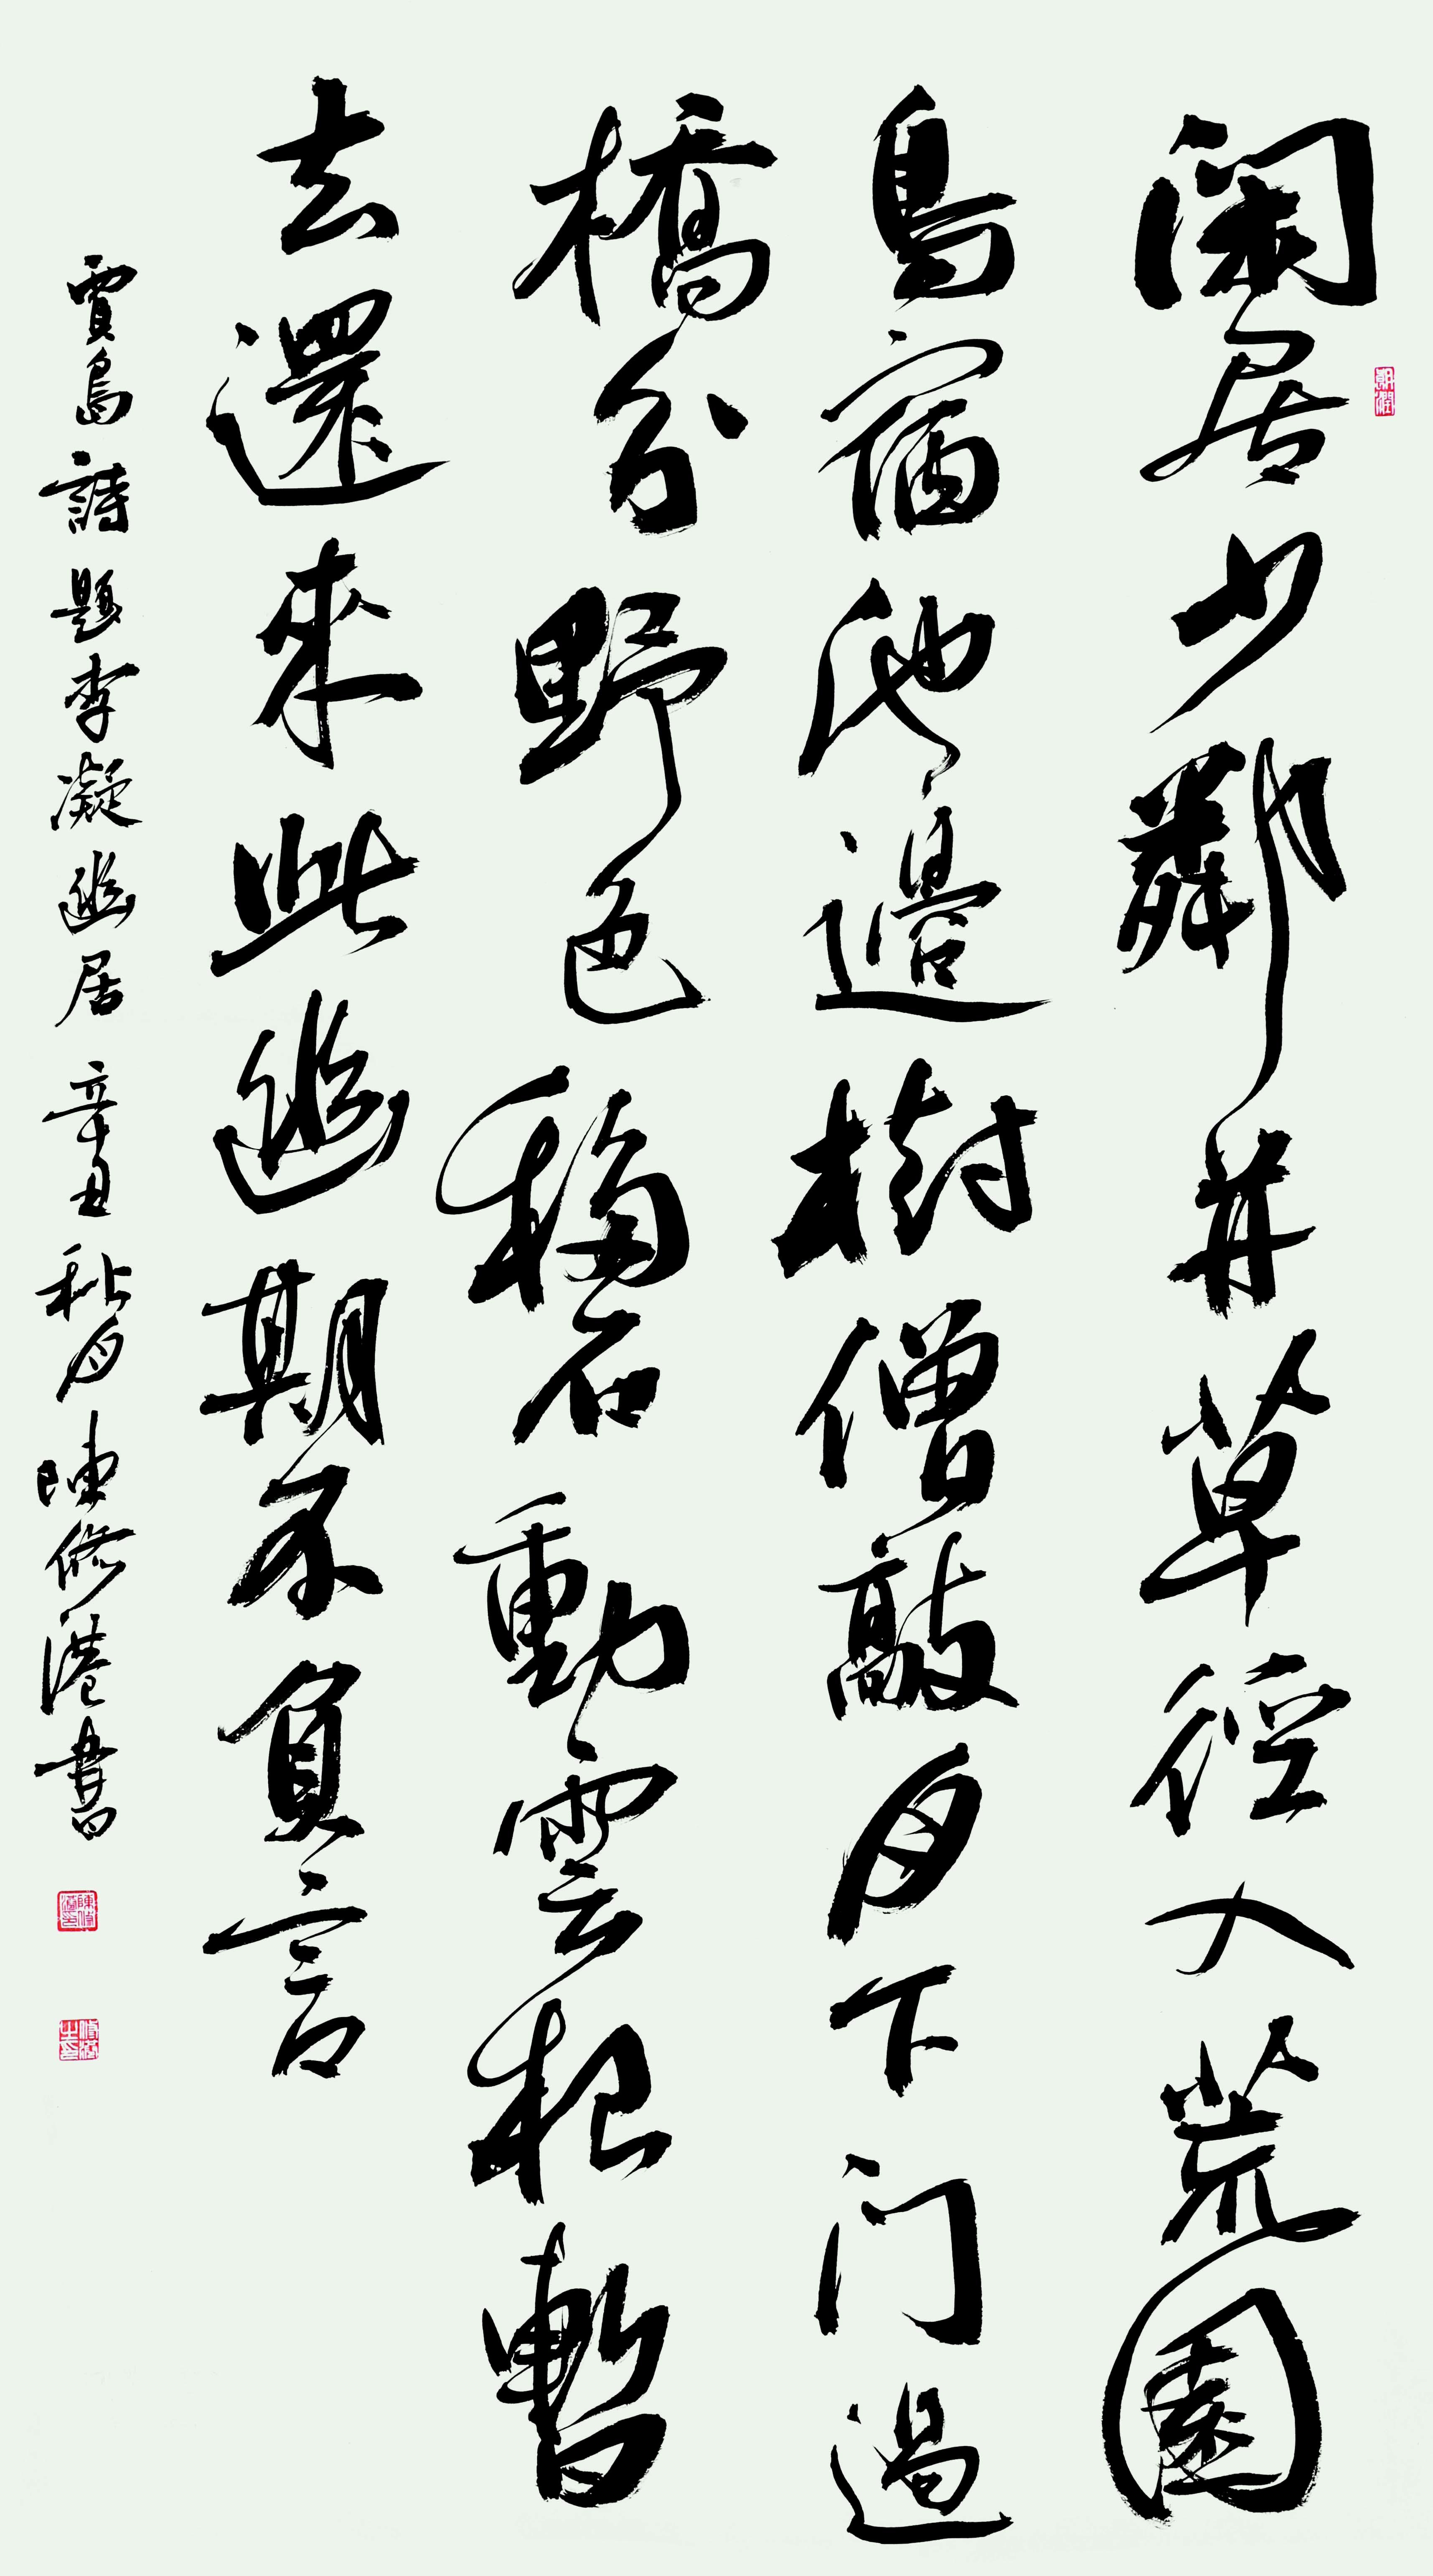 閑居少鄰并草徑入荒園
鳥宿池邊樹僧敲月下门過
橋分野色移石動雲根暫
去還來此幽期不負言
賈島詩題李凝幽居辛丑秋月陳修港書